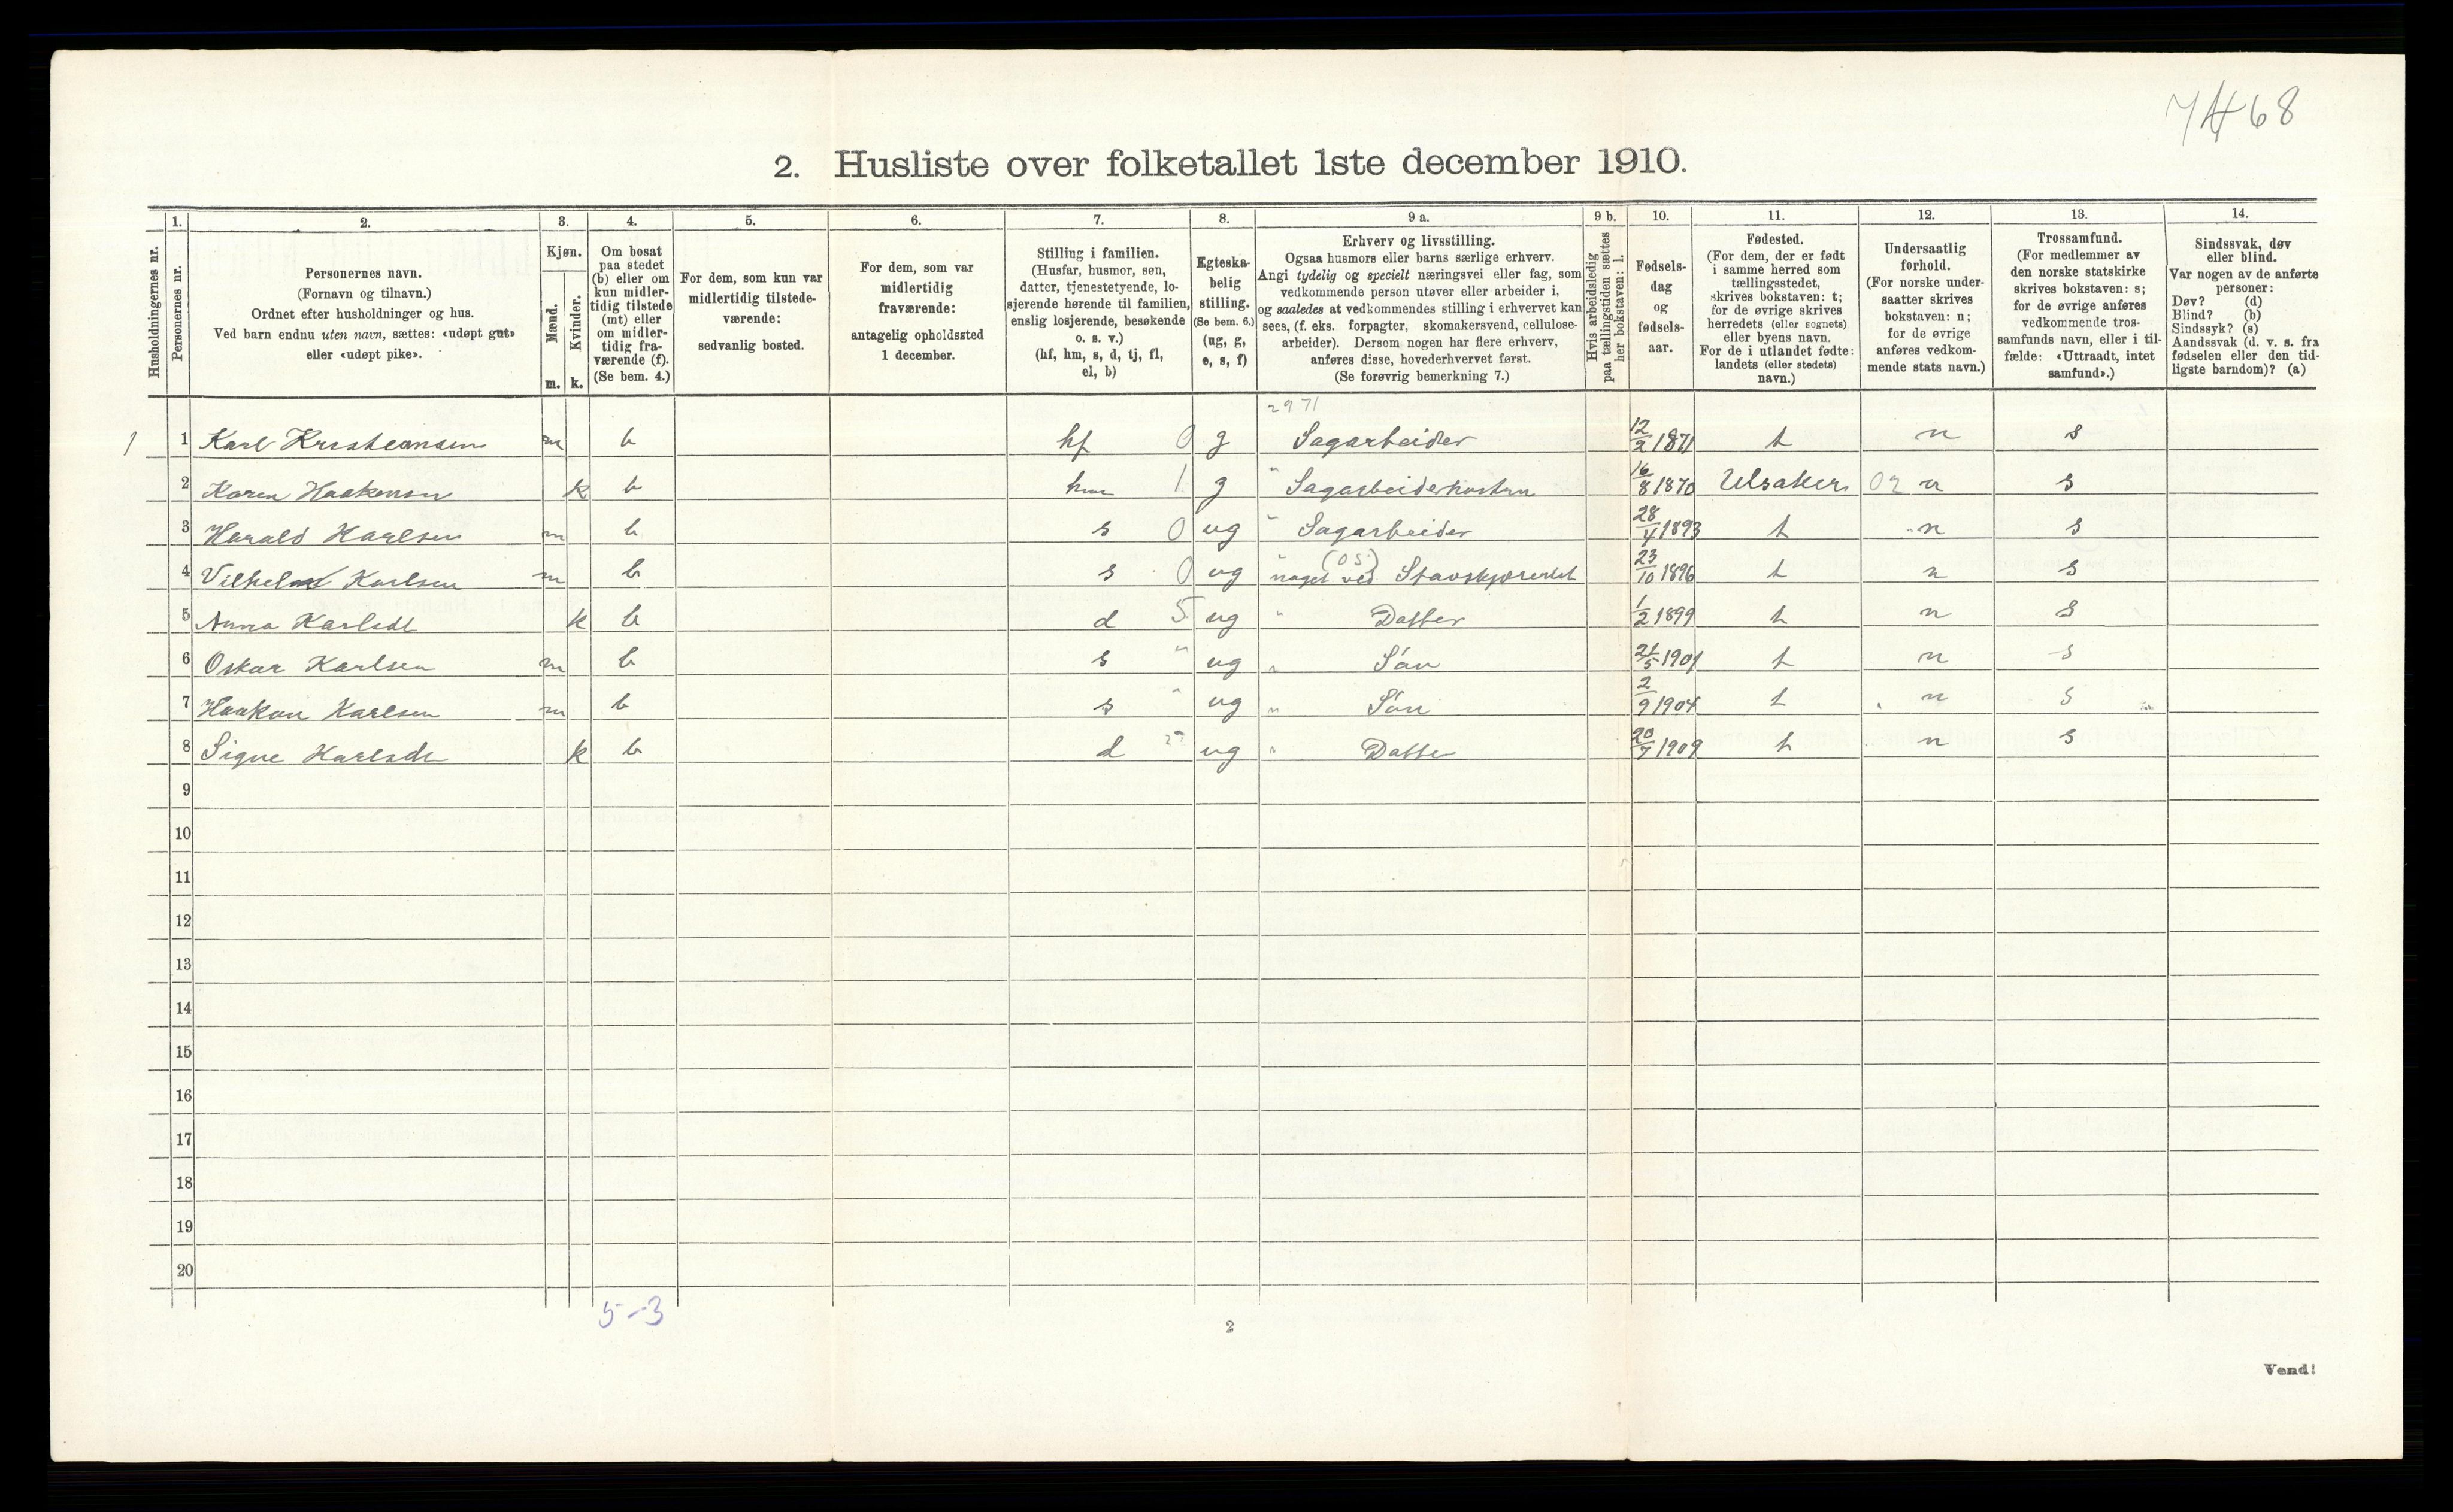 7468
2. Husliste over folketallet 1ste december 1910.
Husholdningernes nr.
1.
Personernes nr.
2.
Personernes navn.
(Fornavn og tilnavn.)
Ordnet efter husholdninger og hus.
Ved barn endnu uten navn, sættes: «udøpt gut»
eller «udøpt pike».
3.
Kjøn.
Mænd.
Kvinder.
m. k.
4.
Om bosat
paa stedet
(b) eller om
kun midler-
tidig tilstede
(mt) eller
om midler-
tidig fra-
værende (f).
(Se bem. 4.)
5.
For dem, som kun var
midlertidig tilstede-
værende:
sedvanlig bosted.
6.
For dem, som var
midlertidig
fraværende:
antagelig opholdssted
1 december.
7.
Stilling i familien.
(Husfar, husmor, søn,
datter, tjenestetyende, lo-
sjerende hørende til familien,
enslig losjerende, besøkende
o. s. v.)
(hf, hm, s, d, tj, fl,
el, b)
8.
Egteska-
belig
stilling.
(Se bem. 6.)
(ug, g,
e, s, f)
9 a.
Erhverv og livsstilling.
Ogsaa husmors eller barns særlige erhverv.
Angi tydelig og specielt næringsvei eller fag, som
vedkommende person utøver eller arbeider i,
og saaledes at vedkommendes stilling i erhvervet kan
sees, (f. eks. forpagter, skomakersvend, cellulose-
arbeider). Dersom nogen har flere erhverv,
anføres disse, hovederhvervet først.
(Se forøvrig bemerkning 7.)
9 b.
Hvis arbeidsledig
paa tællingstiden sættes
her bokstaven: l.
10.
Fødsels-
dag
og
fødsels-
aar.
11.
Fødested.
(For dem, der er født
i samme herred som
tællingsstedet,
skrives bokstaven: t;
for de øvrige skrives
herredets (eller sognets)
eller byens navn.
For de i utlandet fødte:
landets (eller stedets)
navn.)
12.
Undersaatlig
forhold.
(For norske under-
saatter skrives
bokstaven: n;
for de øvrige
anføres vedkom-
mende stats navn.)
13.
Trossamfund.
(For medlemmer av
den norske statskirke
skrives bokstaven: s;
for de øvrige anføres
vedkommende tros-
samfunds navn, eller i til-
fælde: «Uttraadt, intet
samfund».)
14.
Sindssvak, døv
eller blind.
Var nogen av de anførte
personer:
Døv? (d)
Blind? (b)
Sindssyk? (s)
Aandssvak (d. v. s. fra
fødselen eller den tid-
ligste barndom)? (a)
2971
1 1 Karl Kristiansen m b hf 0 g Sagarbeider 12/2 1871 t n s
2 Karen Haakensen k b hm 1 g " Sagarbeiderhustru 16/8 1870 Ulsaker 02 n s
3 Harald Karlsen m b s 0 ug " Sagarbeider 28/4 1893 t n s
(05)
4 Vilhelm Karlsen m b s 0 ug " noget ved Stavskjæreriet 23/10 1896 t n s
5 Anna Karlsdt k b d 5 ug " Datter 1/2 1899 t n s
6 Oskar Karlsen m b s " ug " Søn 21/5 1901 t n s
7 Haakon Karlsen m b s " ug " Søn 2/9 1904 t n s
8 Signe Karlsdt k b d " ug " Datter 20/7 1909 t n s
9
10
11
12
13
14
15
16
17
18
19
20
5-3
2
Vend!